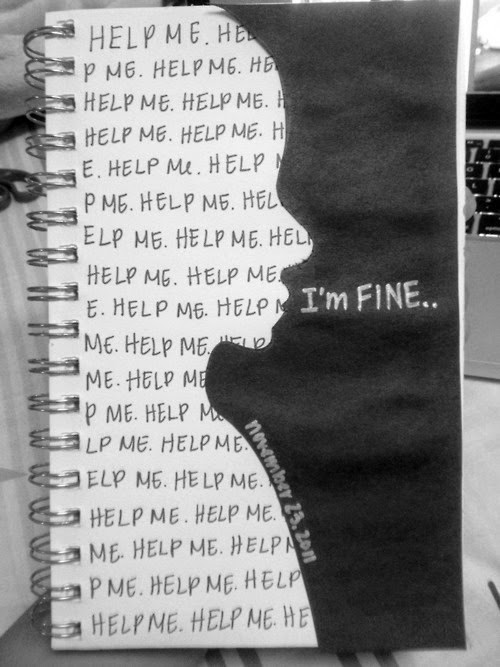 HELP ME. HEL
P ME. HELP ME. HE
HELP ME. HELP ME. H
HELP ME. HELP ME. H
E. HELP Me. HELP M
P ME. HELP ME. HEL
ELP ME. HELP ME. HELP
HELP ME. HELP ME.
I'm FINE..
E. HELP ME. HELP M
ME. HELP ME. HELP
ME. HELP ME
P ME. HELP M
LP ME. HELP ME.
ELP ME. HELP ME.
HELP ME. HELP ME.
ME. HELP ME. HELP M
P ME. HELP ME. HELP
HELP ME. HELP ME. HE
november 23, 2011